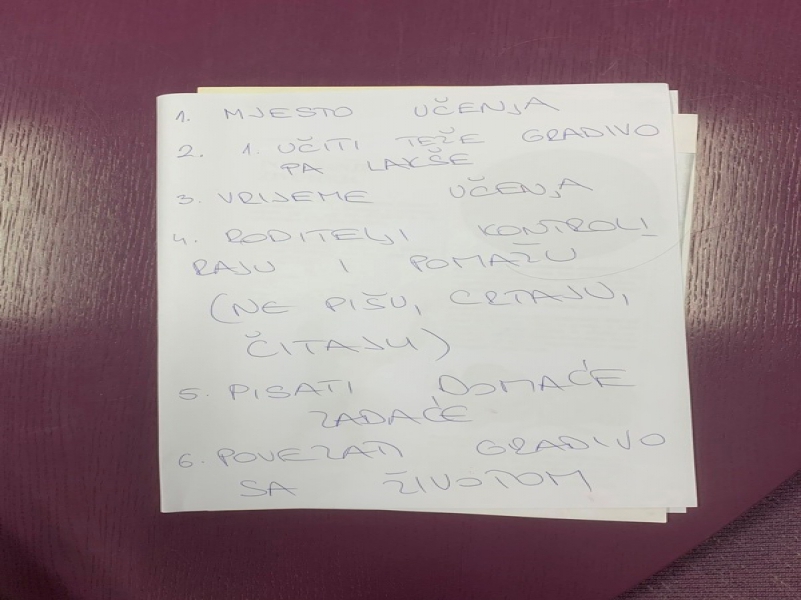 1. MJESTO UČENJA
2. 1. UČITI TEŽE GRADIVO
PA LAKŠE
3. VRIJEME UČENJA
4. RODITELJI KONTROLI
RAJU I POMAŽU
(NE PIŠU, CRTAJU,
ČITAJU)
5. PISATI DOMAĆE
ZADAĆE
6. POVEZATI GRADIVO
SA ŽIVOTOM